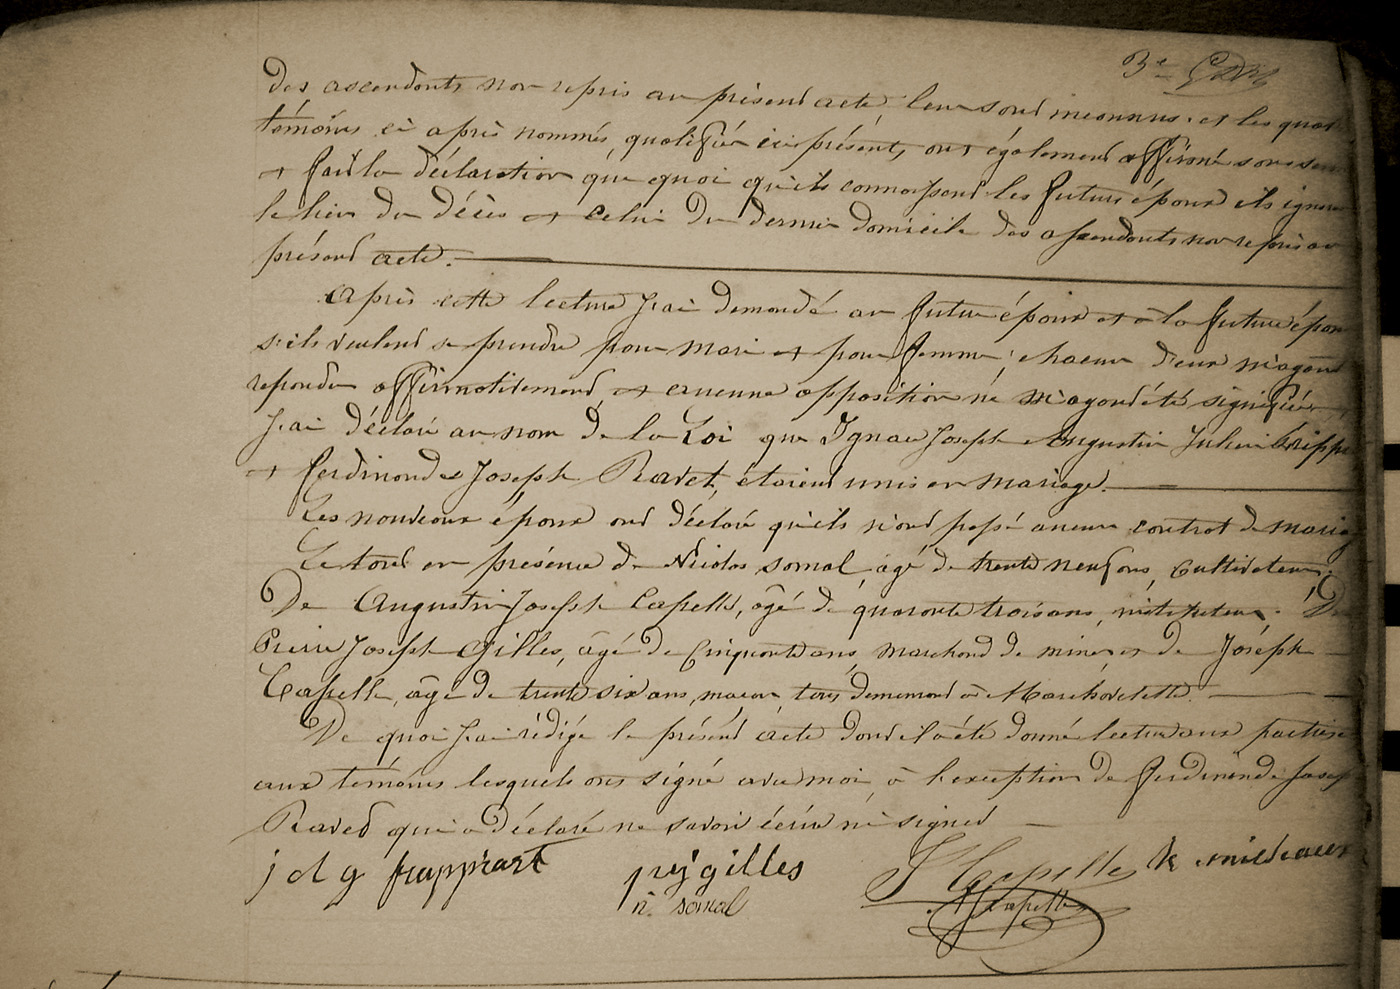 3e
des ascendants non repris au présent acte, leur sont inconnus. et les quat
témoins ci après nommés, qualifiés ici présents, ont également affirmé sous ser
et fait la déclaration que quoi qu'ils connaissent les futurs époux ils ignore
le lieu du décès et celui du dernier domicile des ascendants non repris au
présent acte.
Après cette lecture J'ai demandé au futur époux et à la future épou
s'ils veulent se prendre pour mari et pour femme, chacun d'eux m'ayant
repondu affirmativement, et aucune opposition ne m'ayant été signifiée
J'ai déclaré au nom de la Loi que Ignace Joseph Augustin Julien
et Ferdinande Joseph Ravet, étaient unis en mariage.
Les nouveaux époux ont déclaré qu'ils n'ont passé aucun contrat de mariag
Le tout en présence de Nicolas somal âgé de trente neuf ans, cultivateur.
De Augustin Joseph Capelle, âgé de quarante trois ans, instituteur. De
Pierre Joseph Gilles, âgé de Cinquante ans, marchand de mines et de Joséph
Capelle, âgé de trente six ans, macon tous demeurant à Marchovelette.
De quoi J'ai rédigé le présent acte dont il a été donné lecture aux parties
aux témoins lesquels ont signé avec moi, à l'exception de Ferdinande Josep
Ravet qui a déclaré ne savoir écrire ni signer
j d g frappart pr j gilles J Capelle
n. somal A J Capelle